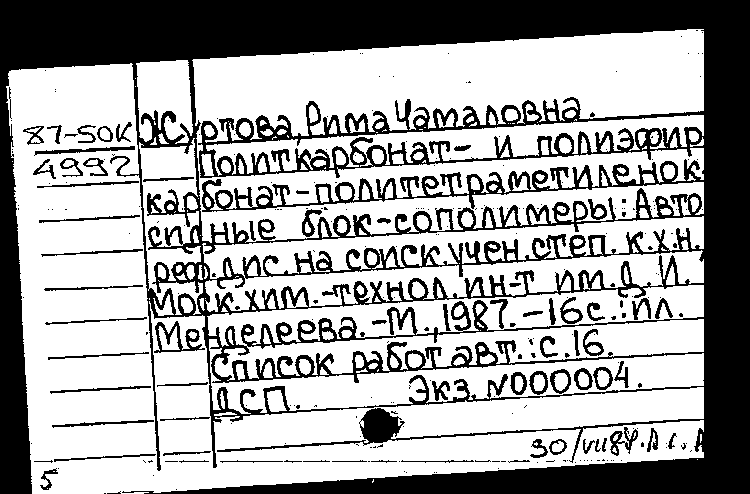 87-50К Журтова, Рима Чамаловна.
4992 Политкарбонат- и полиэфир
карбонат-политетраметиленок
сидные блок-сополимеры: Авто
реф. дис. на соиск. учен. степ. к.х.н.
Моск. хим.-технол. ин-т им. Д. И.
Менделеева. -М., 1987. -16с.: ил.
Список работ авт.: с. 16.
ДСП. Экз. N000004.
30/
5